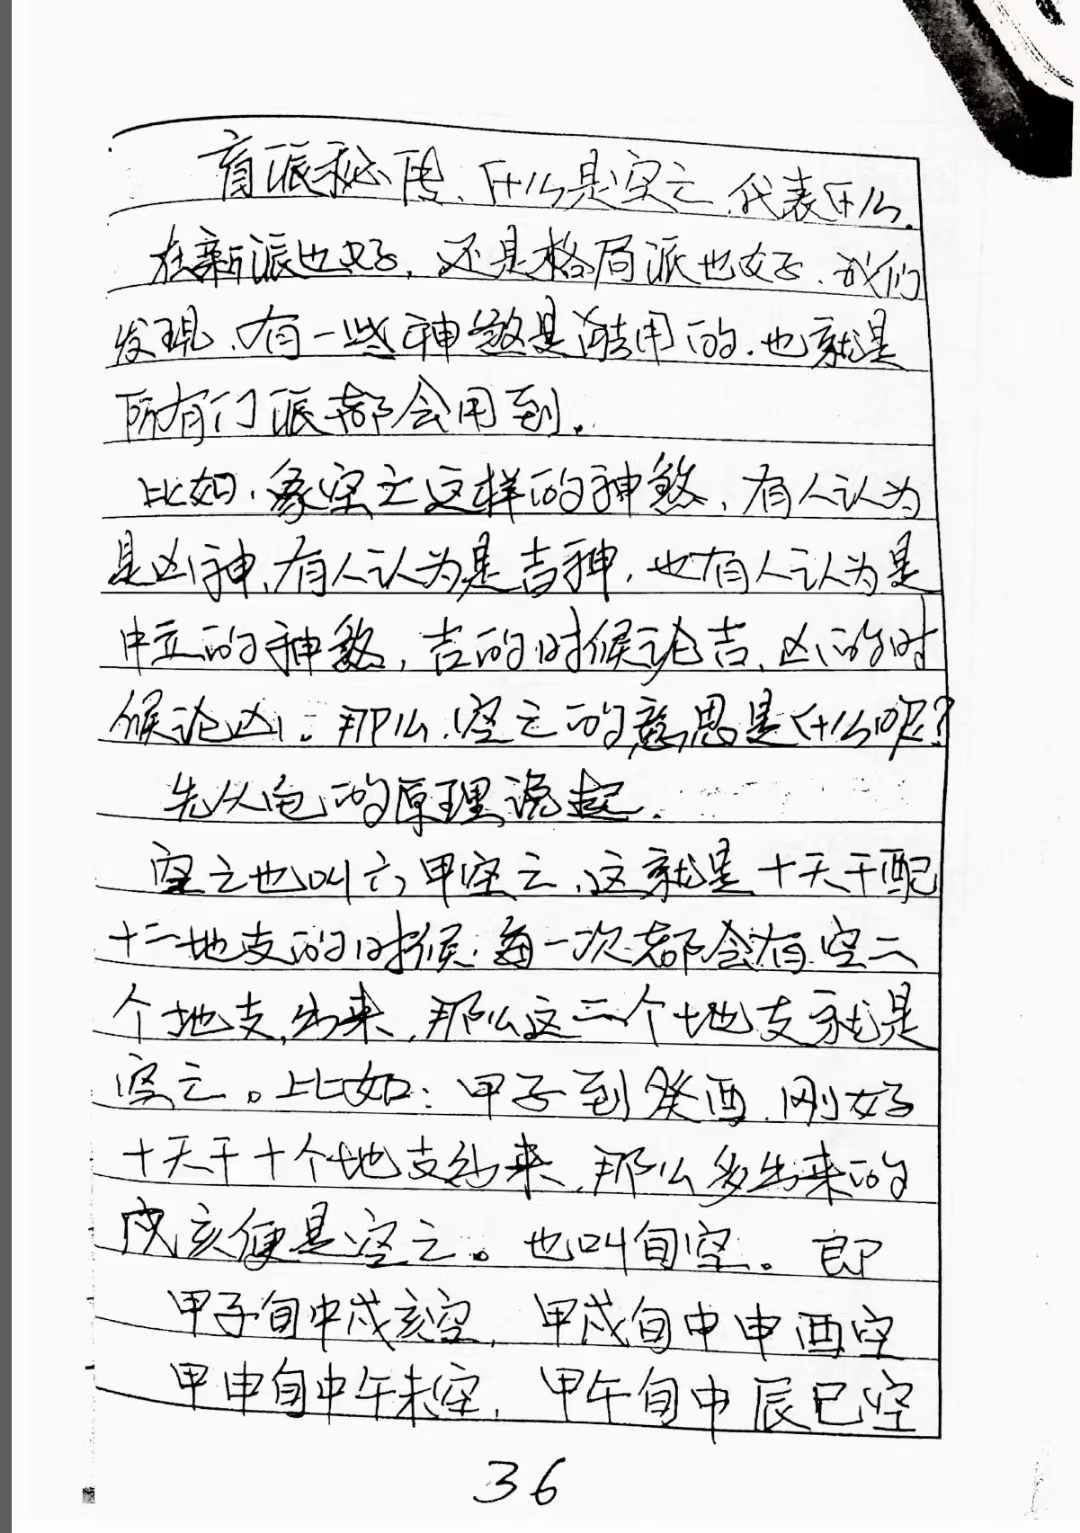 盲派秘传、什么是空亡.代表什么.
在新派也好,还是格局派也好.我们
发现、有一些神煞是活用的.也就是
所有门派都会用到.
比如.象空亡这样的神煞,有人认为
是凶神、有人认为是吉神,也有人认为是
中立的神煞,吉的时候论吉、凶的时
候论凶;那么.空亡的意思是什么呢?
先从它的原理说起.
空亡也叫六甲空亡、这就是十天干配
十二地支的时候.每一次都会有空二
个地支出来,那么这二个地支就是
空亡。比如:甲子到癸酉.刚好
十天干十个地支出来,那么多出来的
戌亥便是空亡。也叫旬空。即
甲子旬中戌亥空,甲戌旬中申酉空
甲申旬中午未空,甲午旬中辰巳空
36